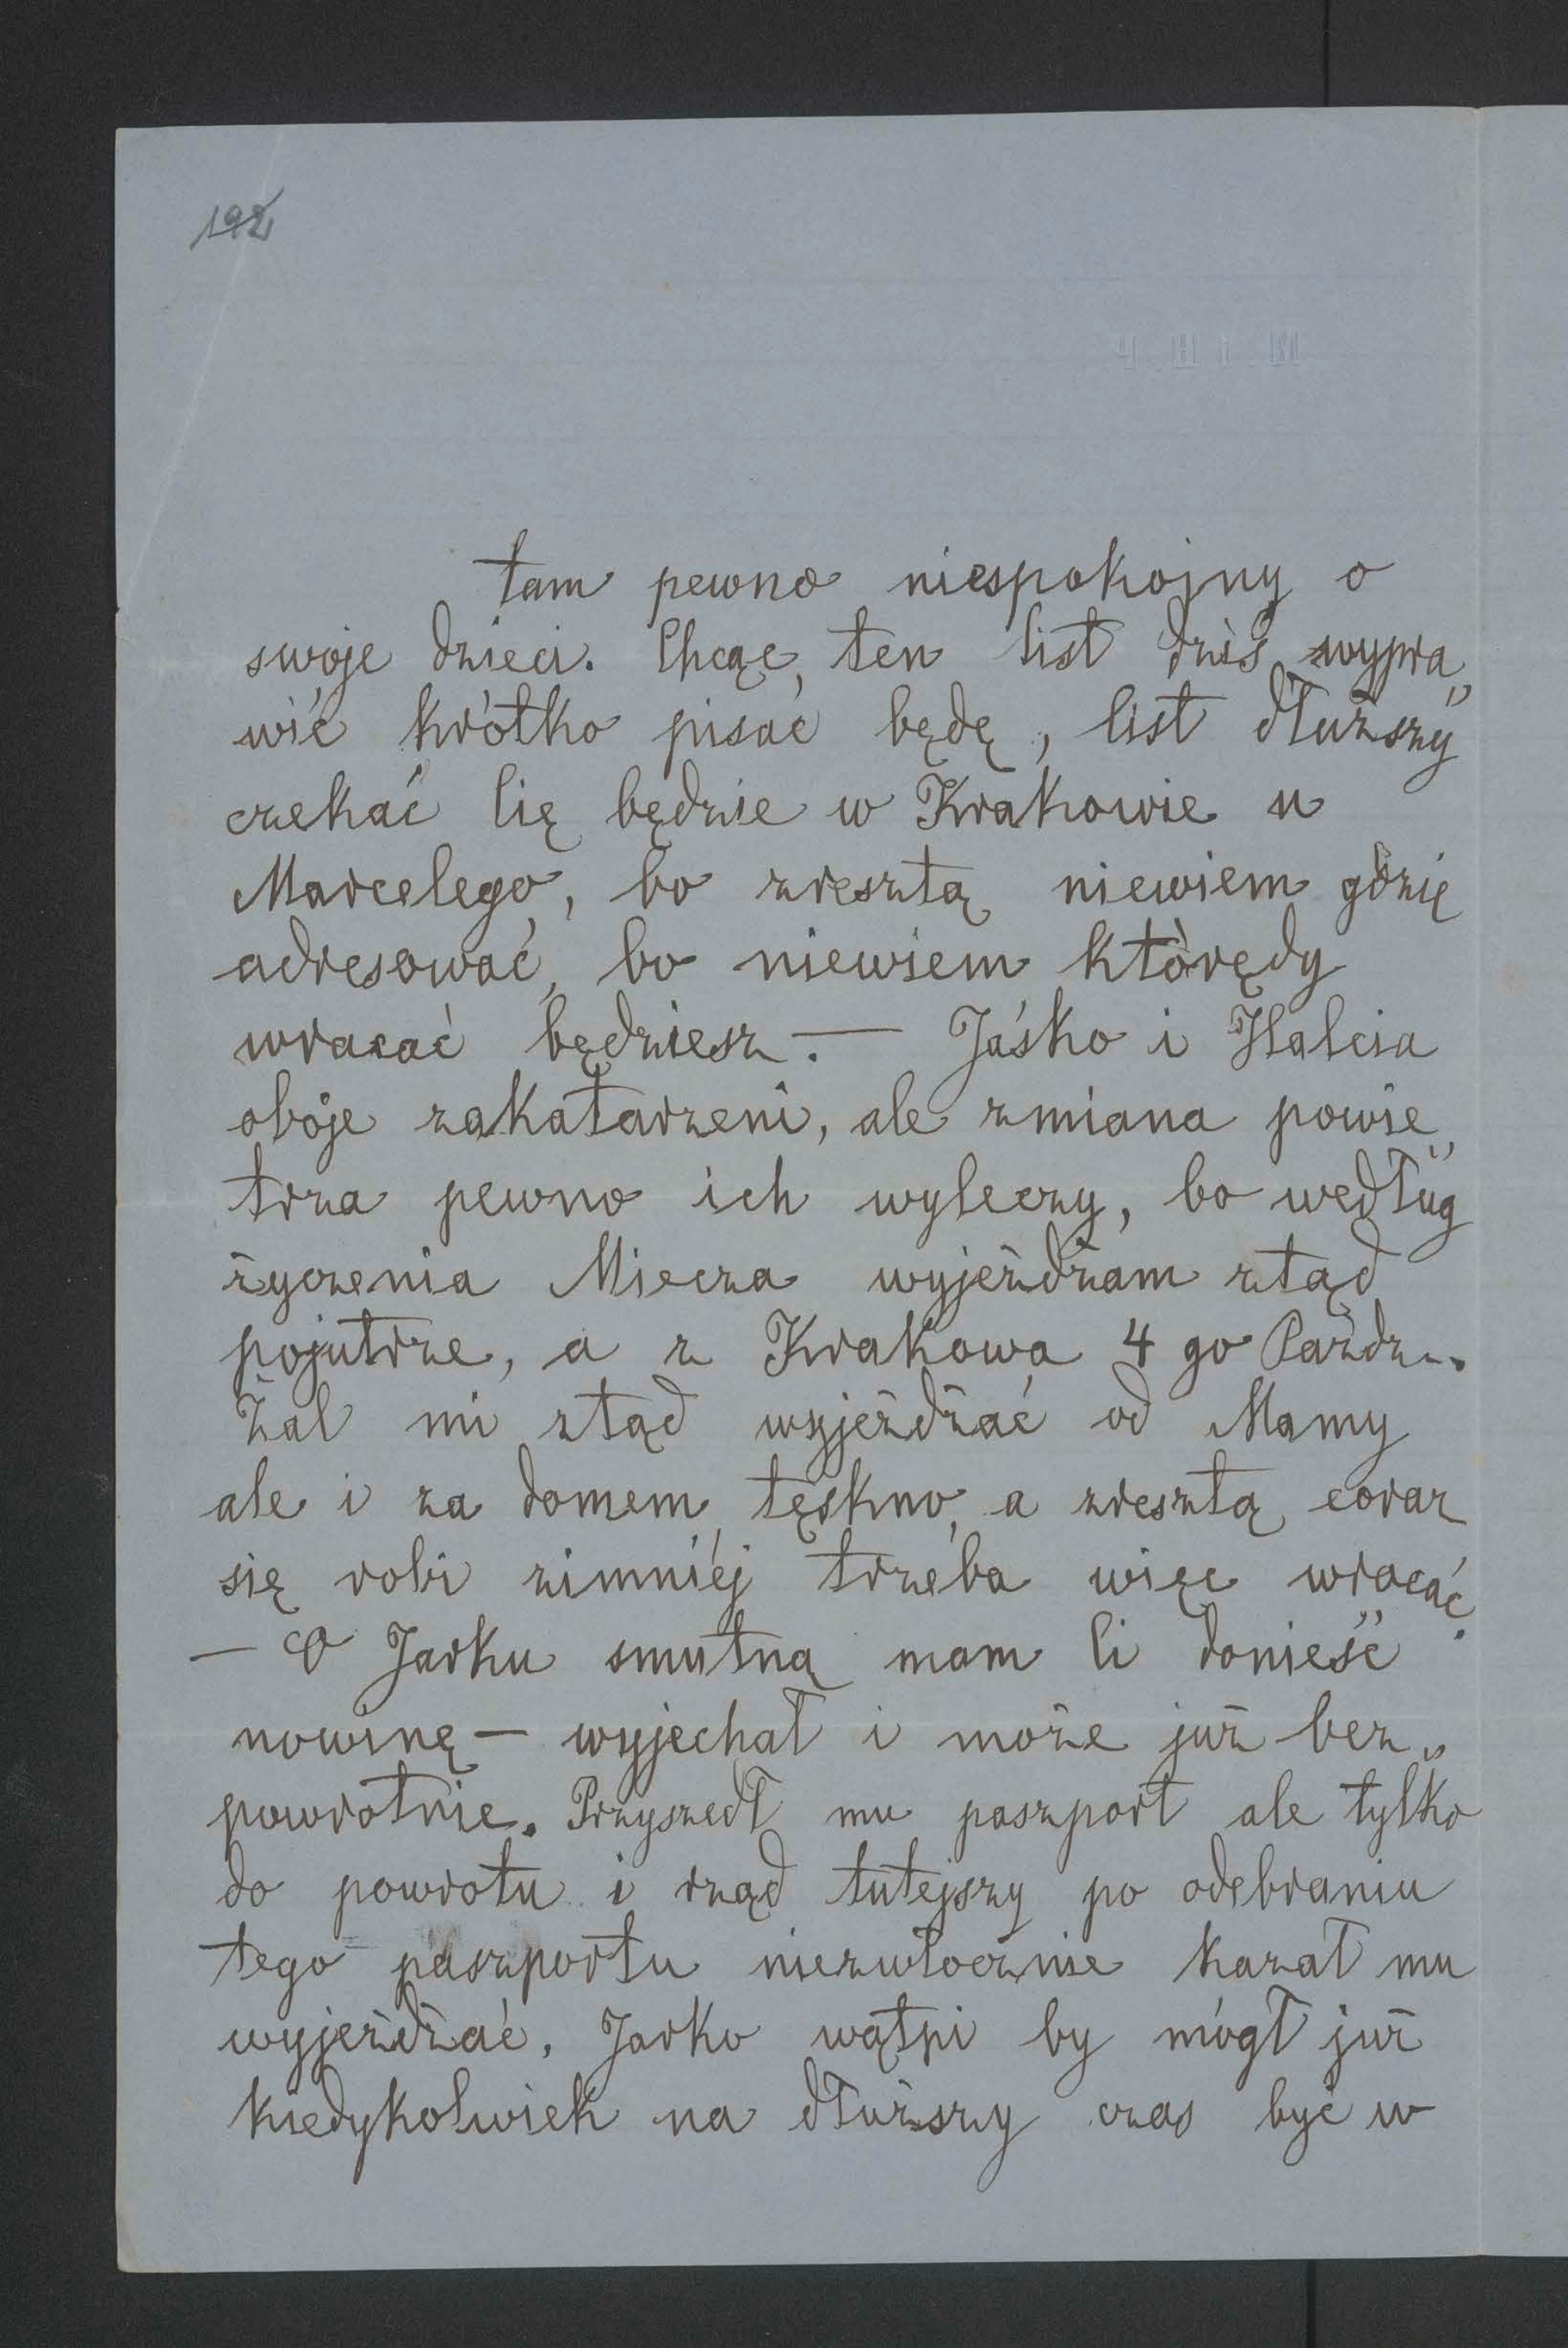 192
tam pewno niespokojny o
swoje dzieci. Chcąc, ten list dziś wypra„
wić krótko pisać będę, list dłuższy
czekać Cię będzie w Krakowie u
Marcelego, bo zresztą niewiem gdzie
adresować, bo niewiem którędy
wracać będziesz. — Jaśko i Halcia
oboje zakatarzeni, ale zmiana powie„
trza pewno ich wyleczy, bo według
życzenia Miecza wyjeżdżam ztąd
pojutrze, a z Krakowa 4 go Paźdz..
Żal mi ztąd wyjeżdżać od Mamy
ale i za domem tęskno, a zresztą coraz
się robi zimniéj trzeba więc wracać.
— O Jarku smutną mam Ci donieść
nowinę — wyjechał i może już bez„
powrotnie. Przyszedł mu paszport ale tylko
do powrotu i rząd tutejszy po odebraniu
tego paszportu niezwłocznie kazał mu
wyjeżdżać. Jarko wątpi by mógł już
kiedykolwiek na dłuższy czas być w